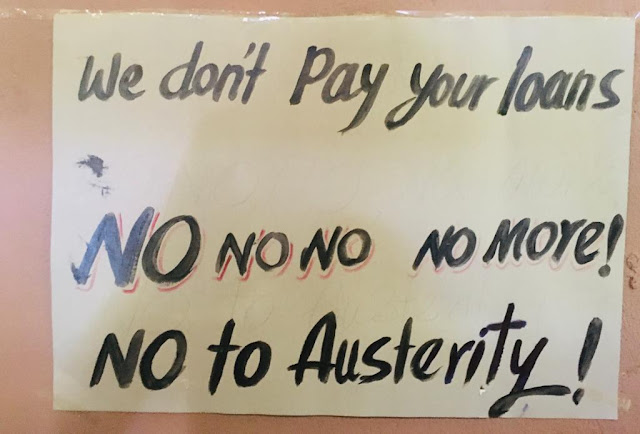 We don't Pay your loans
NO NO NO NO MORe!
NO to Austerity!